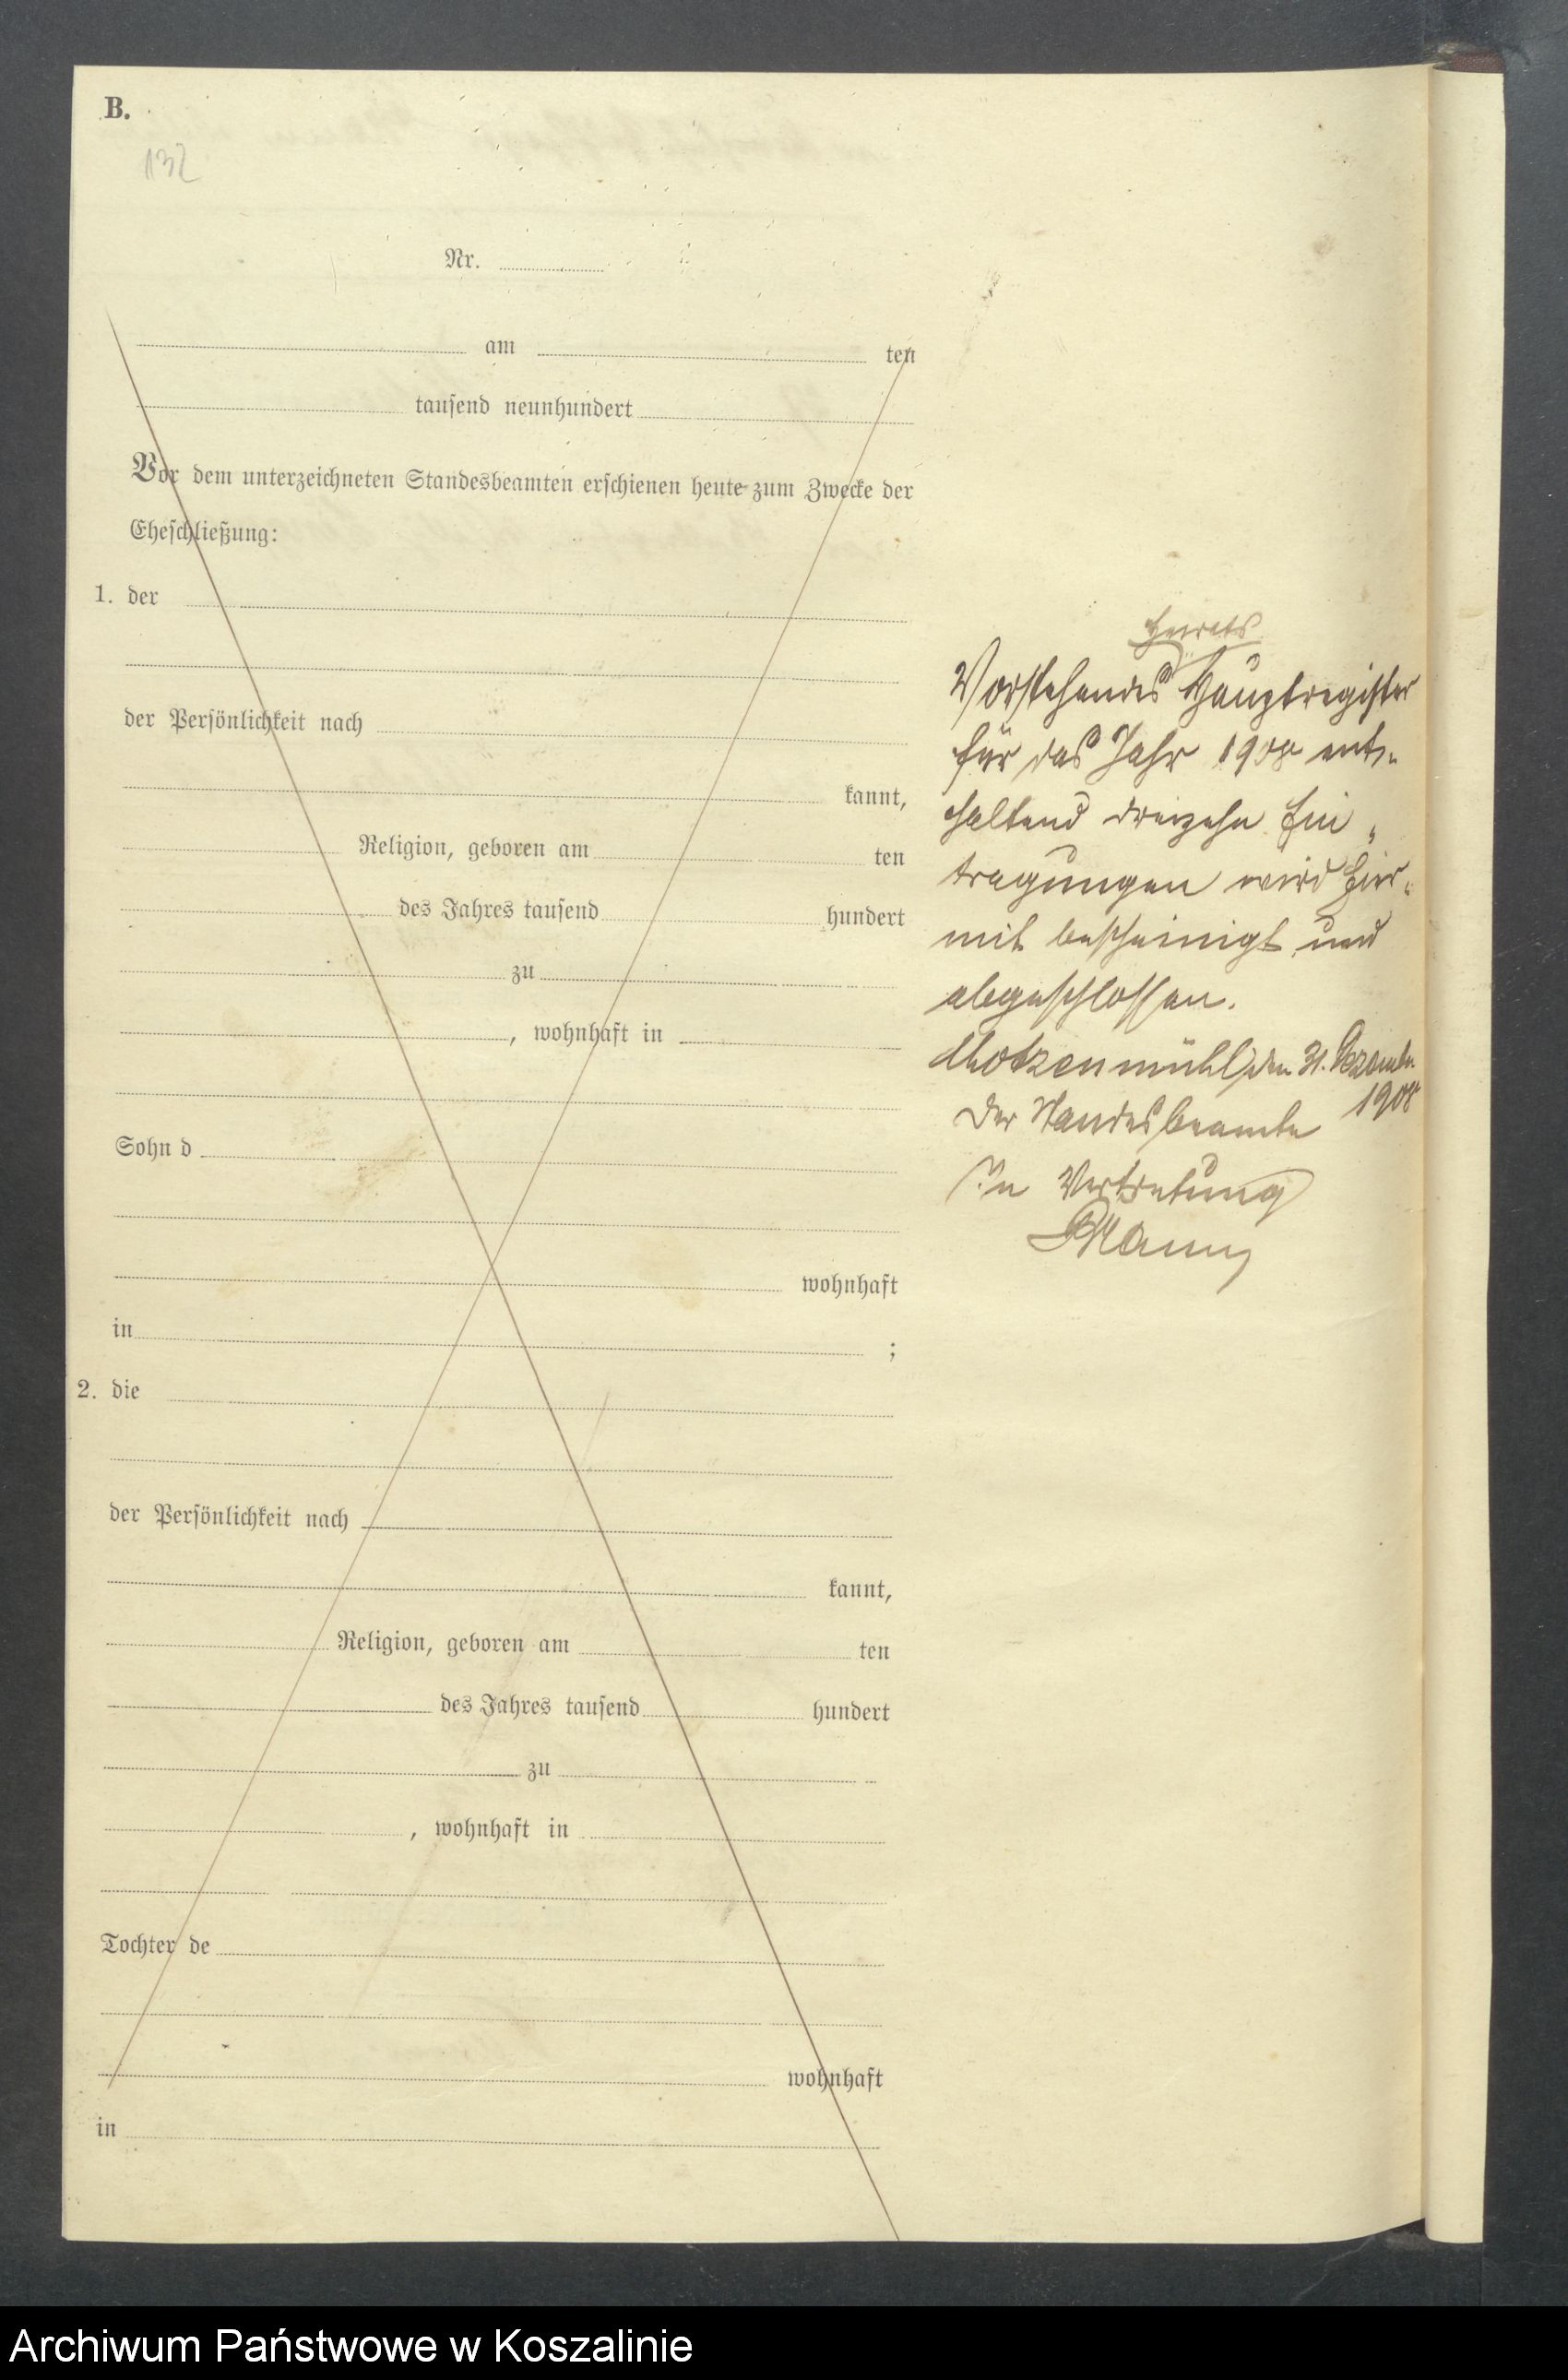 B.
132
Nr.
am ten
tausend neunhundert
Vor dem unterzeichneten Standesbeamten erschienen heute zum Zwecke der
Eheschließung:
1. der
der Persönlichkeit nach
kannt,
Religion, geboren am ten
des Jahres tausend hundert
zu
, wohnhaft in
Sohn d
wohnhaft
in ;
2. die
der Persönlichkeit nach
kannt,
Religion, geboren am ten
des Jahres tausend hundert
zu
, wohnhaft in
Tochter de
wohnhaft
in
Heirats
Vorstehendes Hauptregister
für das Jahr 1908 ent-
haltend dreizehn Ein-
tragungen wird hier-
mit bescheinigt und
abgeschlossen.
den 31. Dezember
1908
Der Standesbeamte
In Vertretung
Archiwum Państwowe w Koszalinie